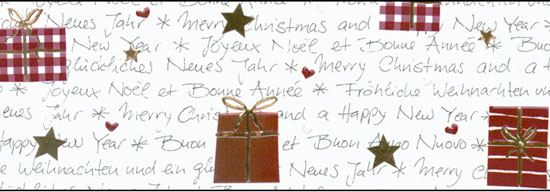 Neues Jahr * Merry Christmas and a Happy New Year
New Year * Joyeux Noël et Bonne Année * Buon
glückliches Neues Jahr * Merry Christmas and a
* Joyeux Noël et Bonne Année * Fröhliche Weihnachten un
Neues Jahr * Merry Christmas and a Happy New Year *
Happy New Year * Buon Buon Anno Nuovo *
Weihnachten und ein Neues Jahr * Merry